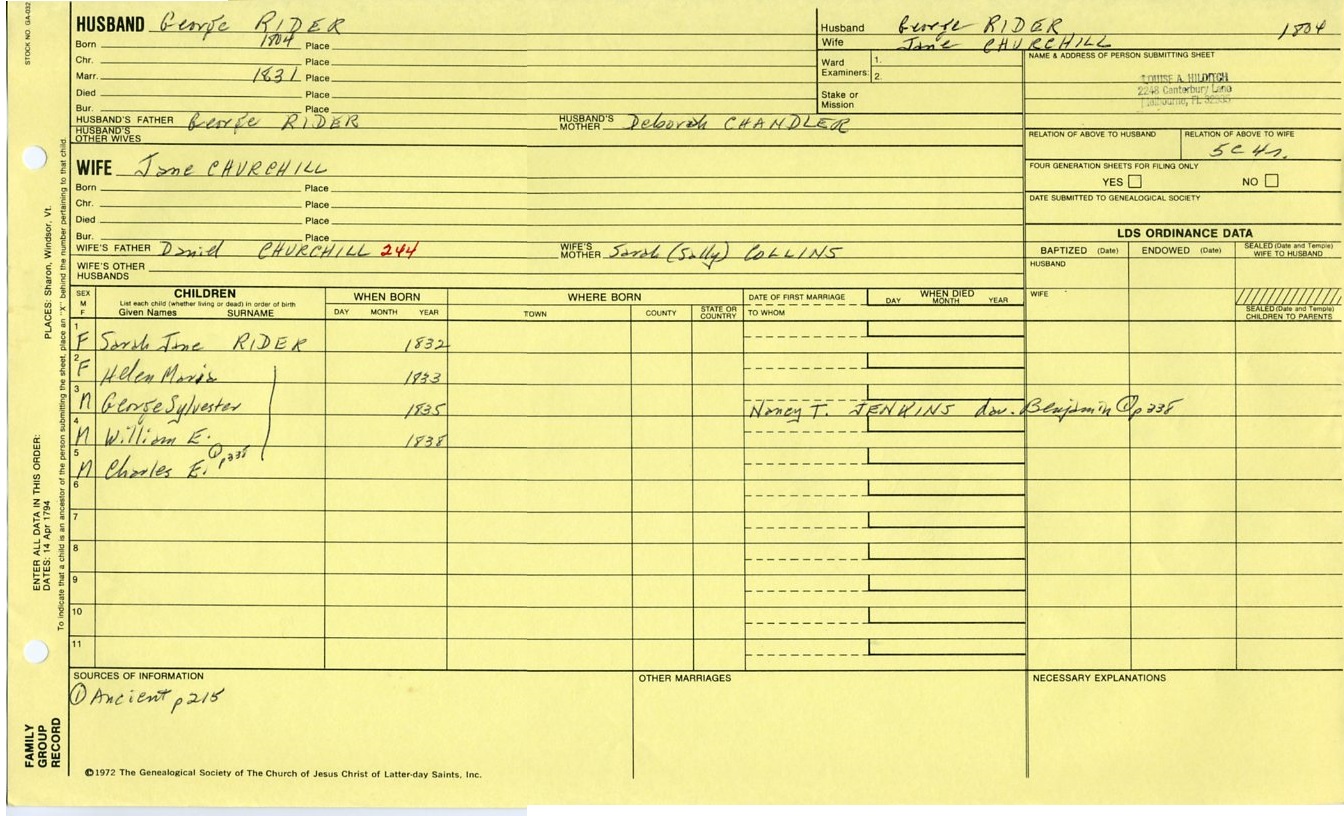 STOCK NO. GA-032
HUSBAND George RIDER
Born 1804 Place
Chr. Place
Marr. 1831 Place
Died Place
Bur. Place
HUSBAND'S FATHER George RIDER HUSBAND'S MOTHER Deborah CHANDLER
HUSBAND'S OTHER WIVES
Husband George RIDER 1804
Wife Jane CHURCHILL
Ward Examiners: 1.
2.
Stake or Mission
NAME & ADDRESS OF PERSON SUBMITTING SHEET
LOUISE A. HILDITCH
2248 Canterbury Lane
Melbourne, FL 32935
RELATION OF ABOVE TO HUSBAND RELATION OF ABOVE TO WIFE
5C 4r.
FOUR GENERATION SHEETS FOR FILING ONLY
YES NO
DATE SUBMITTED TO GENEALOGICAL SOCIETY
WIFE Jane CHURCHILL
Born Place
Chr. Place
Died Place
Bur. Place
WIFE'S FATHER Daniel CHURCHILL 244 WIFE'S MOTHER Sarah (Sally) COLLINS
WIFE'S OTHER HUSBANDS
LDS ORDINANCE DATA
BAPTIZED (Date) ENDOWED (Date) SEALED (Date and Temple) WIFE TO HUSBAND
HUSBAND
WIFE
SEALED (Date and Temple) CHILDREN TO PARENTS
SEX M F CHILDREN WHEN BORN WHERE BORN DATE OF FIRST MARRIAGE WHEN DIED
List each child (whether living or dead) in order of birth
Given Names SURNAME DAY MONTH YEAR TOWN COUNTY STATE OR COUNTRY TO WHOM DAY MONTH YEAR
1 F Sarah Jane RIDER 1832
2 F Helen Maria 1833
3 M George Sylvester 1835 Nancy T. JENKINS dau. Benjamin p338
4 M William E. 1838
5 M Charles E. p338
6
7
8
9
10
11
SOURCES OF INFORMATION OTHER MARRIAGES NECESSARY EXPLANATIONS
① Ancient p215
©1972 The Genealogical Society of The Church of Jesus Christ of Latter-day Saints, Inc.
FAMILY GROUP RECORD
ENTER ALL DATA IN THIS ORDER:
DATES: 14 Apr 1794 PLACES: Sharon, Windsor, Vt.
To indicate that a child is an ancestor of the person submitting the sheet, place an "X" behind the number pertaining to that child.